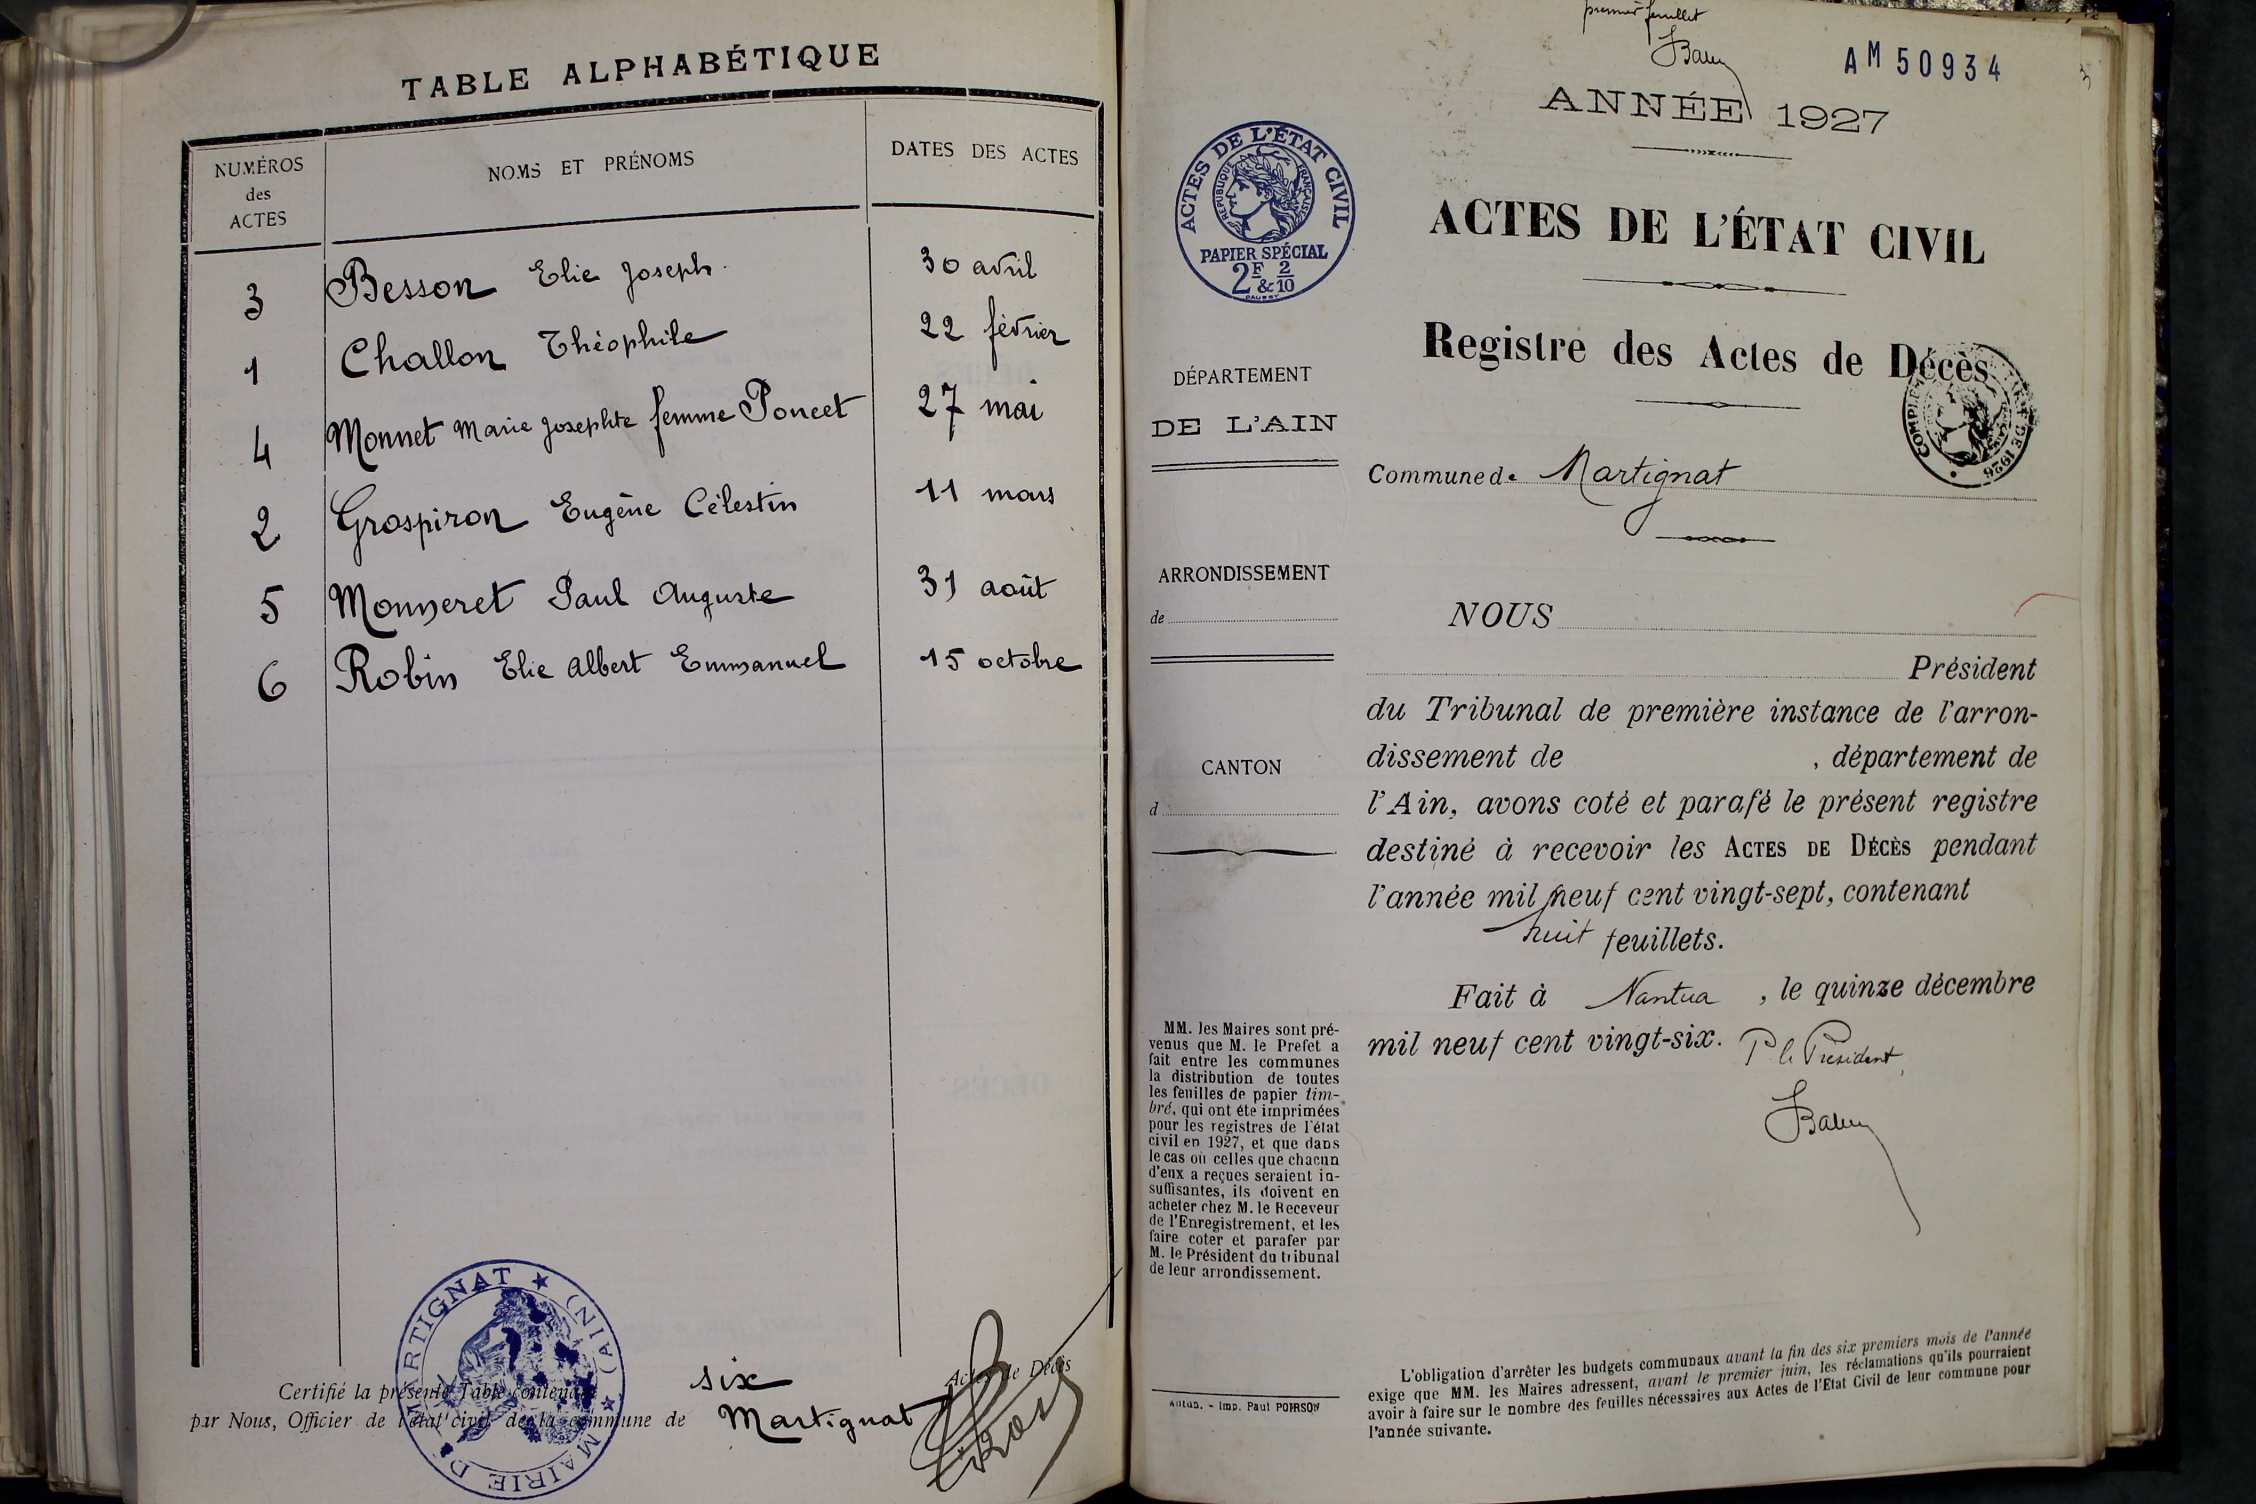 TABLE ALPHABÉTIQUE
NUMÉROS
des
ACTES
NOMS ET PRÉNOMS
DATES DES ACTES
3 Besson Elie Joseph 30 avril
1 Challon Théophile 22 février
4 Monnet Marie Josephte femme Poncet 27 mai
2 Grospiron Eugène Célestin 11 mars
5 Monneret Paul Auguste 31 août
6 Robin Elie Albert Emmanuel 15 octobre
Certifié la présente Table contenant six Actes de Décès
par Nous, Officier de l'état civil de la commune de Martignat
MAIRIE DE MARTIGNAT ★ (AIN) ★
premier feuillet
AM 50934
ANNÉE 1927
ACTES DE L'ÉTAT CIVIL
RÉPUBLIQUE FRANÇAISE
PAPIER SPÉCIAL
2F & 2/10
ACTES DE L'ÉTAT CIVIL
Registre des Actes de Décès
1926
DÉPARTEMENT
DE L'AIN
Commune de Martignat
ARRONDISSEMENT
de
CANTON
d
NOUS
Président
du Tribunal de première instance de l'arron-
dissement de , département de
l'Ain, avons coté et parafé le présent registre
destiné à recevoir les ACTES DE DÉCÈS pendant
l'année mil neuf cent vingt-sept, contenant
huit feuillets.
Fait à Nantua , le quinze décembre
mil neuf cent vingt-six.
P. le Président,
MM. les Maires sont pré-
venus que M. le Prefet a
fait entre les communes
la distribution de toutes
les feuilles de papier tim-
bré, qui ont été imprimées
pour les registres de l'état
civil en 1927, et que dans
le cas où celles que chacun
d'eux a reçues seraient in-
suffisantes, ils doivent en
acheter chez M. le Receveur
de l'Enregistrement, et les
faire coter et parafer par
M. le Président du tribunal
de leur arrondissement.
Autun. - Imp. Paul POIRSON
L'obligation d'arrêter les budgets communaux avant la fin des six premiers mois de l'année
exige que MM. les Maires adressent, avant le premier juin, les réclamations qu'ils pourraient
avoir à faire sur le nombre des feuilles nécessaires aux Actes de l'Etat Civil de leur commune pour
l'année suivante.